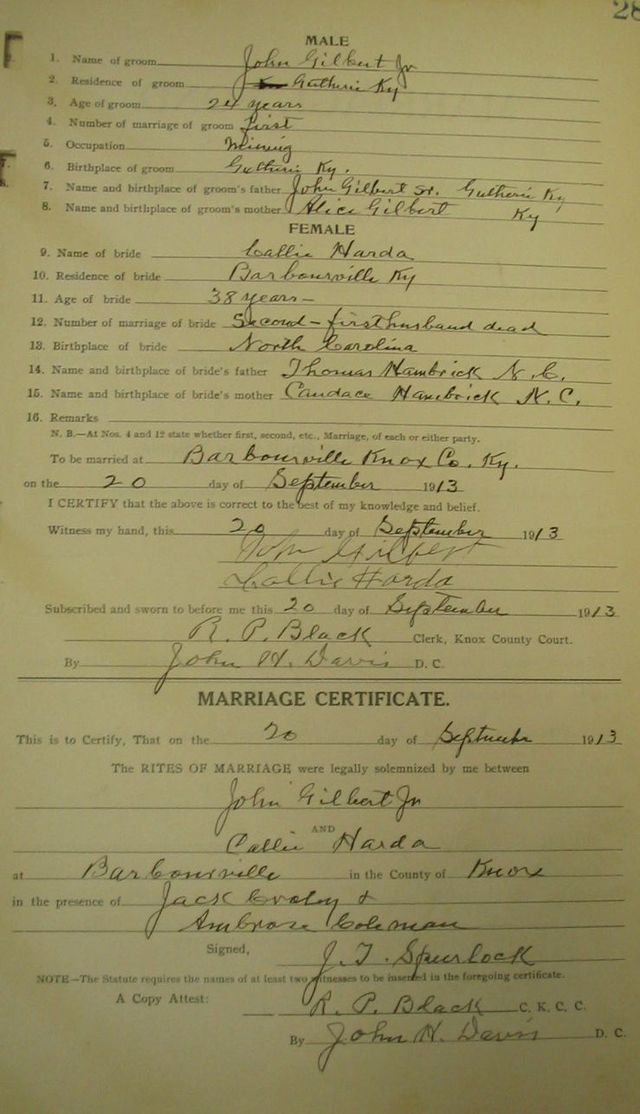 28
MALE
1. Name of groom John Gilbert Jr
2. Residence of groom Guthrie Ky
3. Age of groom 24 years
4. Number of marriage of groom first
5. Occupation Mining
6. Birthplace of groom Guthrie Ky.
7. Name and birthplace of groom's father John Gilbert Sr. Guthrie Ky
8. Name and birthplace of groom's mother Alice Gilbert Ky
FEMALE
9. Name of bride Callie Harda
10. Residence of bride Barbourville Ky
11. Age of bride 38 years —
12. Number of marriage of bride Second — first husband dead
13. Birthplace of bride North Carolina
14. Name and birthplace of bride's father Thomas Hambrick N. C.
15. Name and birthplace of bride's mother Candace Hambrick N. C.
16. Remarks
N. B.—At Nos. 4 and 12 state whether first, second, etc., Marriage, of each or either party.
To be married at Barbourville Knox Co. Ky.
on the 20 day of September 1913
I CERTIFY that the above is correct to the best of my knowledge and belief.
Witness my hand, this 20 day of September 1913
John Gilbert
Callie Harda
Subscribed and sworn to before me this 20 day of September 1913
R. P. Black Clerk, Knox County Court.
By John H. Davis D. C.
MARRIAGE CERTIFICATE.
This is to Certify, That on the 20 day of September 1913
The RITES OF MARRIAGE were legally solemnized by me between
John Gilbert Jr
AND
Callie Harda
at Barbourville in the County of Knox
in the presence of Jack &
Ambrose Coleman
Signed, J. T. Spurlock
NOTE—The Statute requires the names of at least two witnesses to be inserted in the foregoing certificate.
A Copy Attest: R. P. Black C. K. C. C.
By John H. Davis D. C.